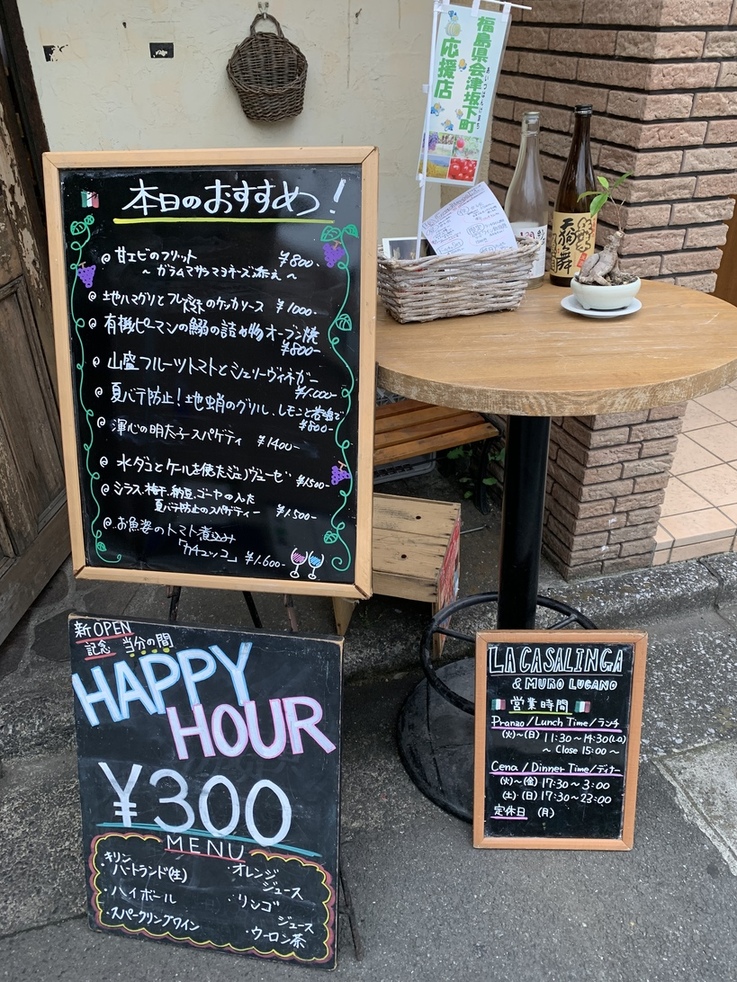 福島県会津坂下町
応援店
本日のおすすめ!
甘エビのフリット ¥800-
~ガラムマサラマヨネーズ添え~
地ハマグリとフレッシュトマトのケッカソース ¥1000-
有機ピーマンの鰯の詰め物オーブン焼
¥800-
山盛フルーツトマトとシェリーヴィネガー
¥1.000-
夏バテ防止!地蛸のグリル、レモンと岩塩で
¥800-
渾心の明太子スパゲティ ¥1400-
水ダコとケールを使たジェノヴェーゼ ¥1500-
シラス、梅干、納豆、ゴーヤの入た
夏バテ防止のスパゲティー ¥1.500-
お魚姿のトマト煮込み
「カチュッコ」 ¥1.600-
天狗舞
新OPEN
記念 当分の間
HAPPY
HOUR
¥300
MENU
・キリン
ハートランド(生)
・ハイボール
・スパークリングワイン
・オレンジ
ジュース
・リンゴ
ジュース
・ウーロン茶
LA CASALINGA
& MURO LUGANO
営業時間
Pranzo/Lunch Time/ランチ
(火)~(日) 11:30~14:30(L.o)
~ Close 15:00~
Cena/Dinner Time/ディナー
(火)~(金) 17:30~3:00
(土)(日) 17:30~23:00
定休日 (月)